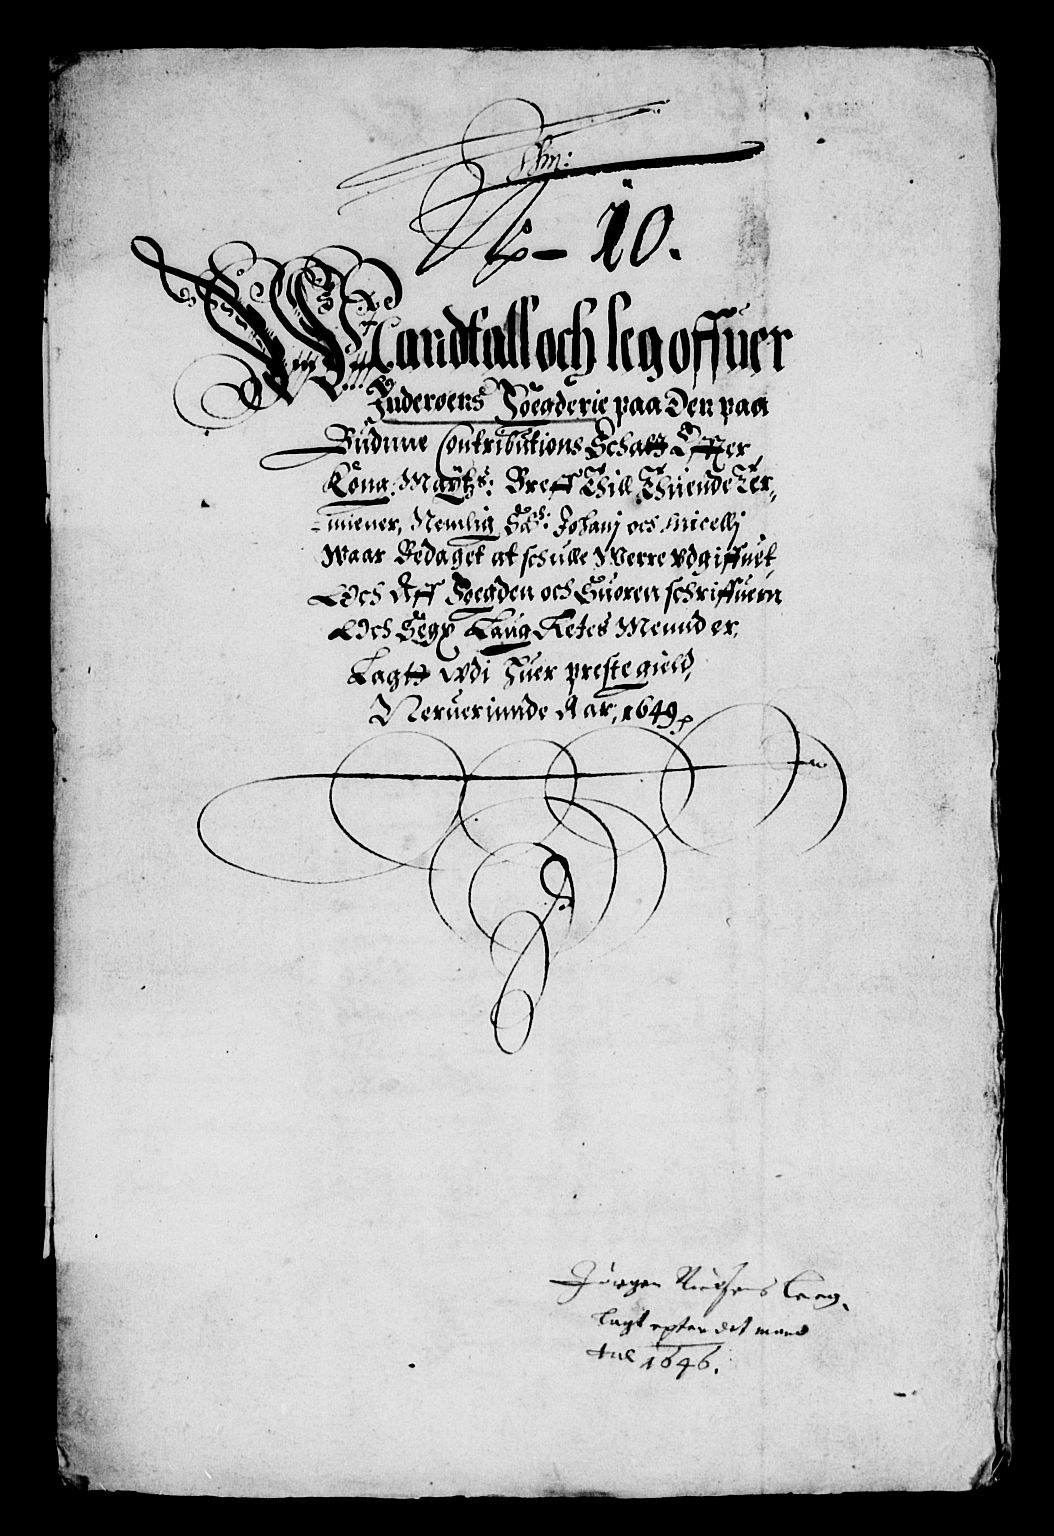 No 10.
Mandtall och leg offuer
Inderøens Foegderie paa Den paa
Büdnne Contributions Schatt Effter
Kong: Maytz: Breff Till Thüende Ter,
miener, Nemlig Sc: Johanj och Micellj
Waar Bedaget at schulle Werre Vdgiffuet
Och Aff Foegden och Suoren schriffuern
Och Sex Laug Retes Mennd er,
Lagtt Vdi Huer prestegield,
Neruerinnde Aar, 1649
Jørgen Nielsens Leeg,
lagt epter det mand
tal 1646.